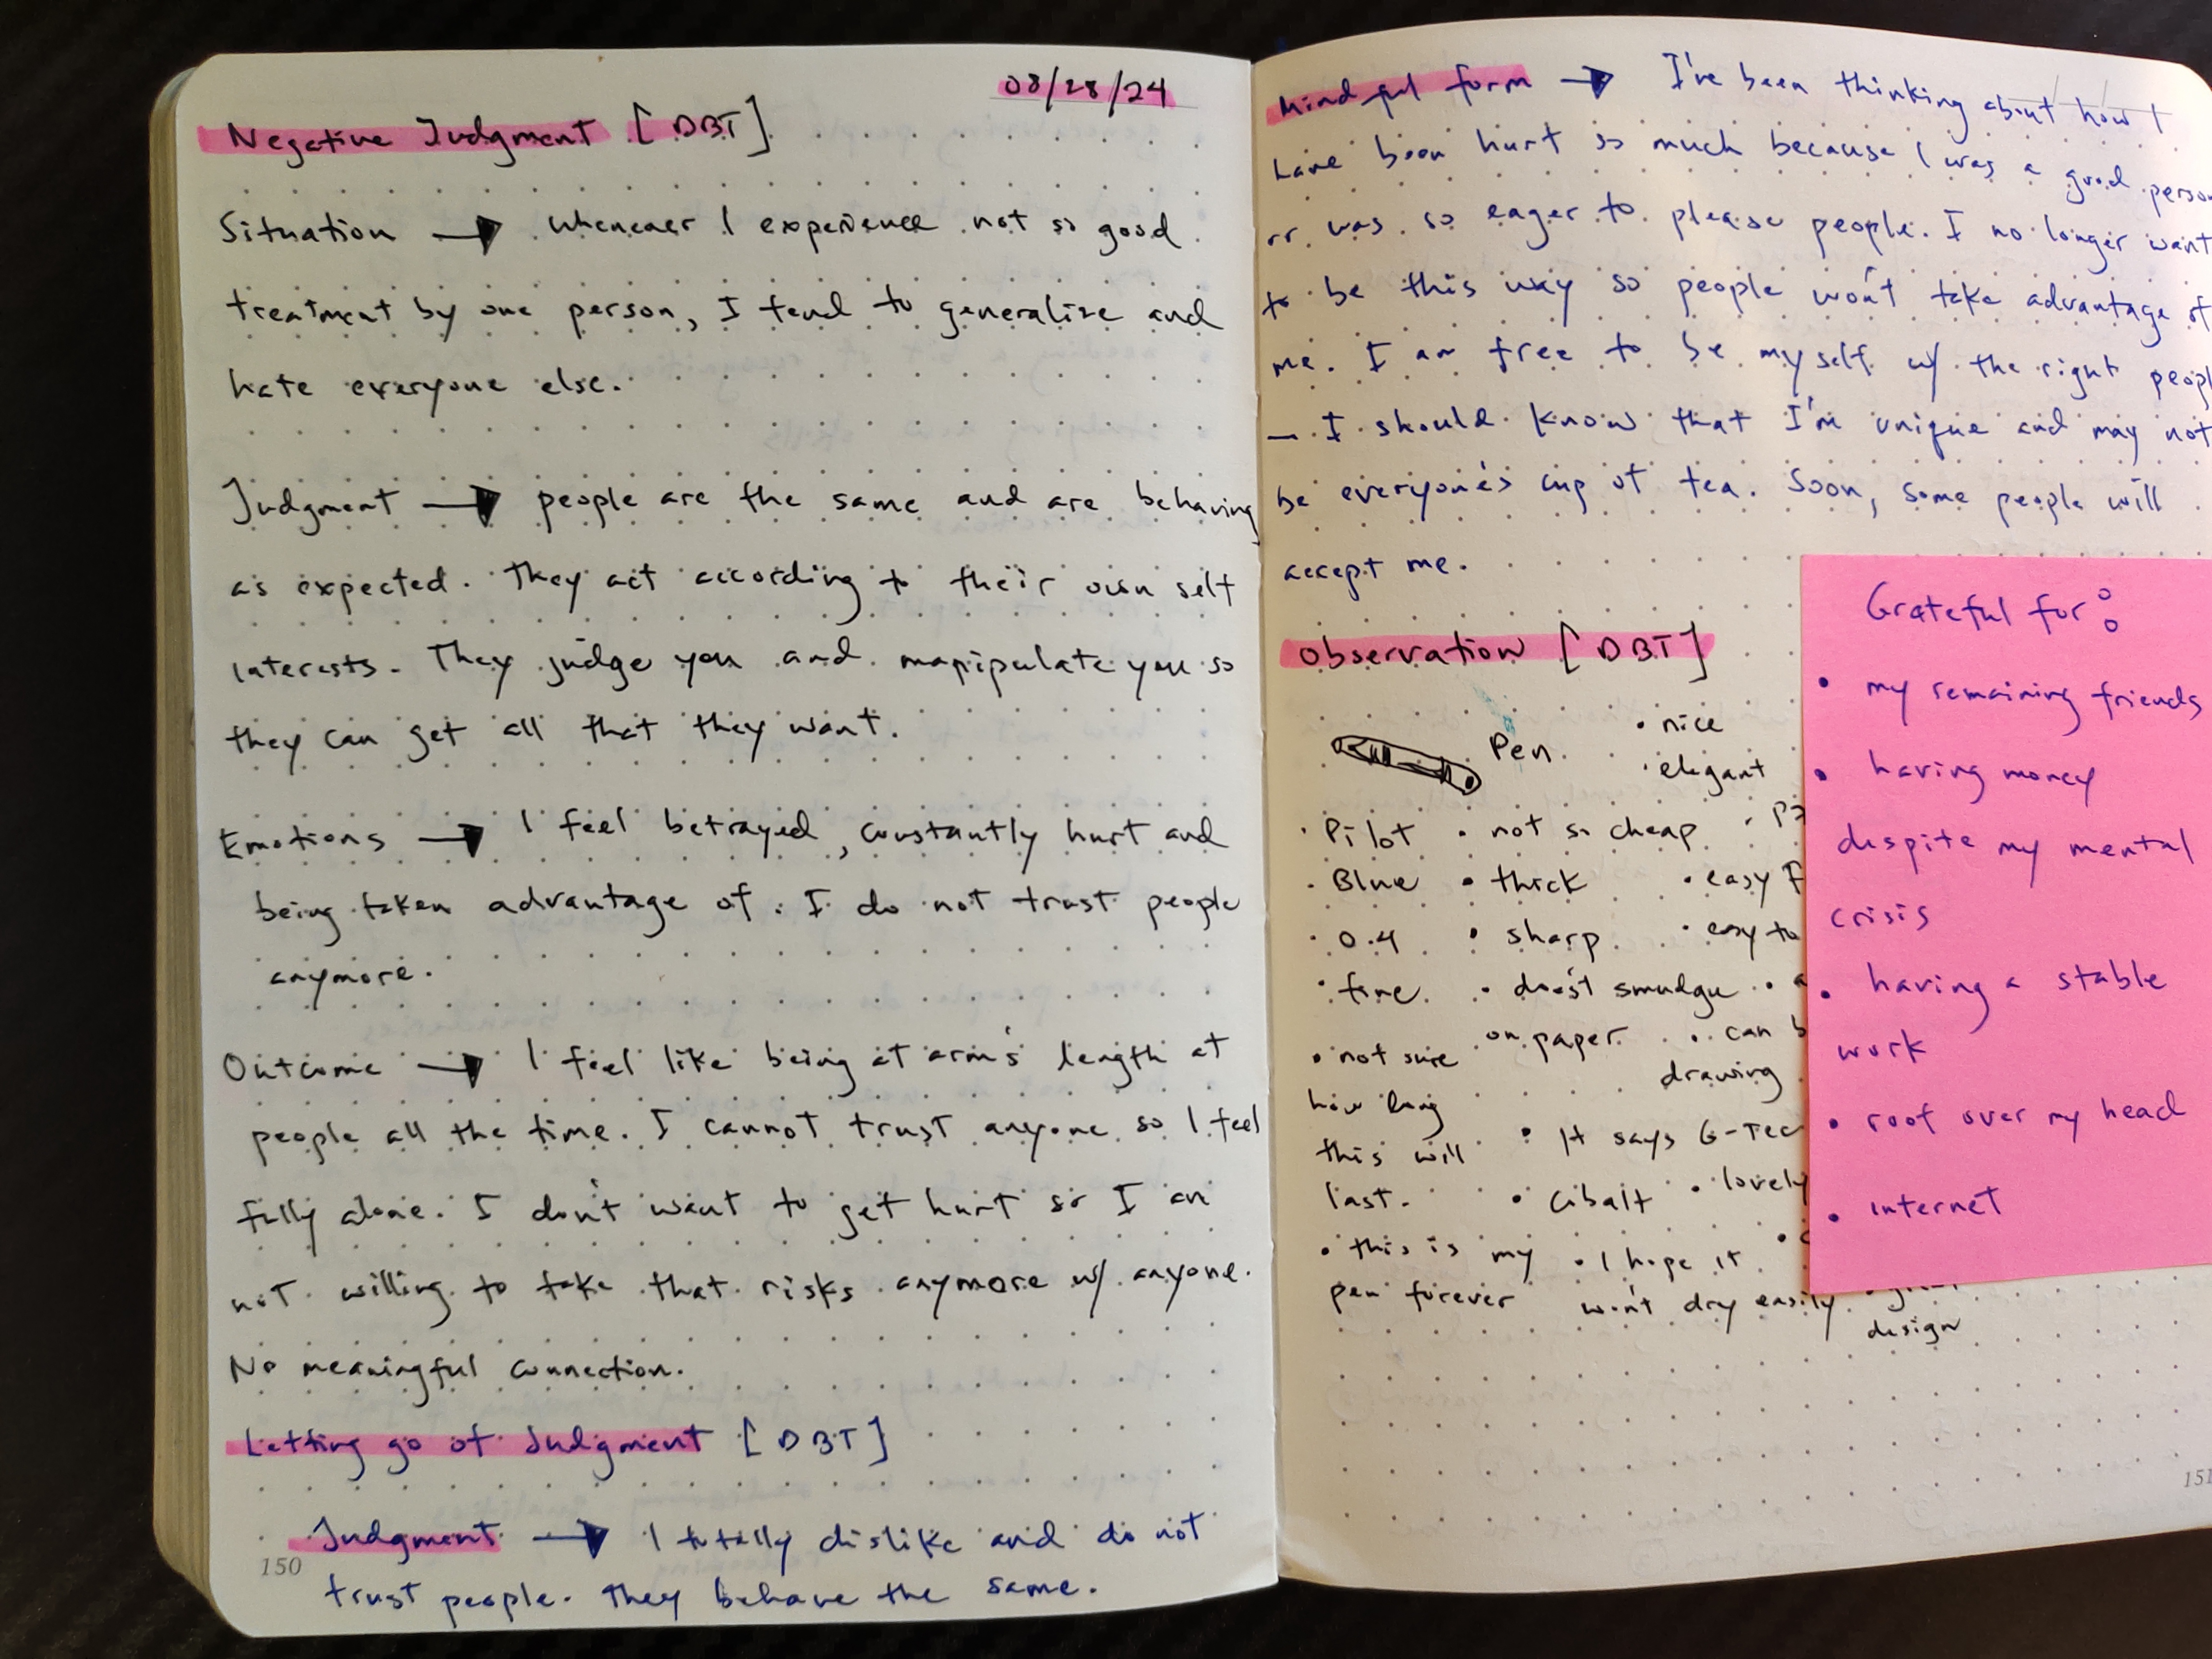 08/28/24
Negative Judgment [DBT]
Situation → whenever I experience not so good
treatment by one person, I tend to generalize and
hate everyone else.
Judgment → people are the same and are behaving
as expected. They act according to their own self
interests. They judge you and manipulate you so
they can get all that they want.
Emotions → I feel betrayed, constantly hurt and
being taken advantage of. I do not trust people
anymore.
Outcome → I feel like being at arm's length at
people all the time. I cannot trust anyone so I feel
fully alone. I don't want to get hurt so I am
not willing to take that risks anymore w/ anyone.
No meaningful connection.
Letting go of Judgment [DBT]
Judgment → I totally dislike and do not
trust people. They behave the same.
150
Mindful form → I've been thinking about how I
have been hurt so much because I was a good person
or was so eager to please people. I no longer want
to be this way so people won't take advantage of
me. I am free to be myself w/ the right
— I should know that I'm unique and may not
be everyone's cup of tea. Soon, some people will
accept me.
Observation [DBT]
Pen
• nice
• elegant
• Pilot
• Blue
• 0.4
• fine
• not sure
how long
this will
last.
• this is my
pen forever
• not so cheap
• thick
• sharp
• doesn't smudge
on paper
• It says G-Tec
• Cobalt
• I hope it
won't dry easily
• easy
• easy to
• can
drawing
• lovely
design
Grateful for:
• my remaining friends
• having money
despite my mental
crisis
• having a stable
work
• roof over my head
• internet
151